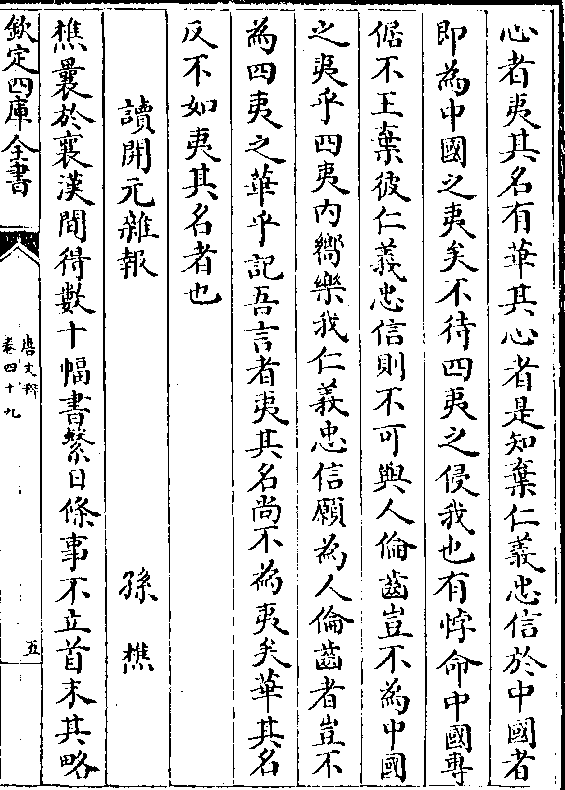 心者夷其名有華其心者是知棄仁義忠信於中國者
即為中國之夷矣不待四夷之侵我也有悖命中國專
倨不王棄彼仁義忠信則不可與人倫齒豈不為中國
之夷乎四夷内嚮樂我仁義忠信願為人倫齒者豈不
為四夷之華乎記吾言者夷其名尚不為夷矣華其名
反不如夷其名者也
讀開元雜報
孫樵
樵曩於襄漢間得數十幅書繫日條事不立首末其略
欽定四庫全書
唐文粹
卷四十九
五